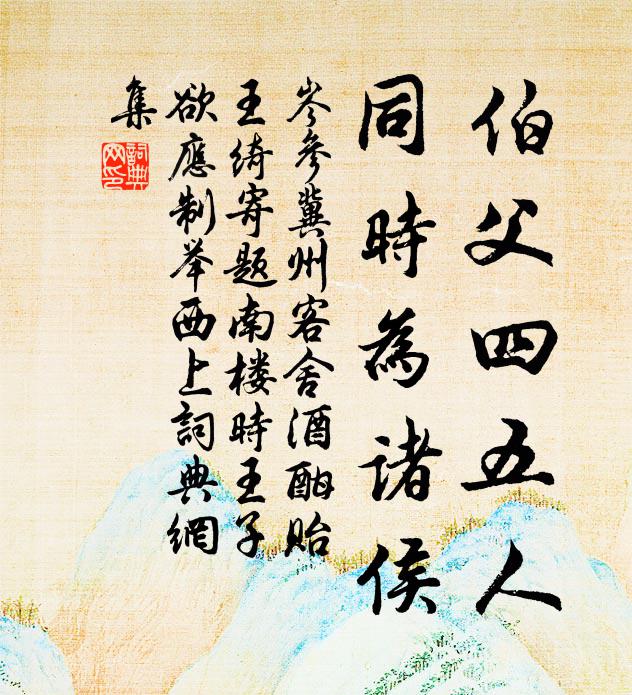 伯父四五人
同時為諸侯
岑參冀州客舍酒酣貽
王綺寄題南楼時王子
欲應制举西上詞典網
集
詞典網印